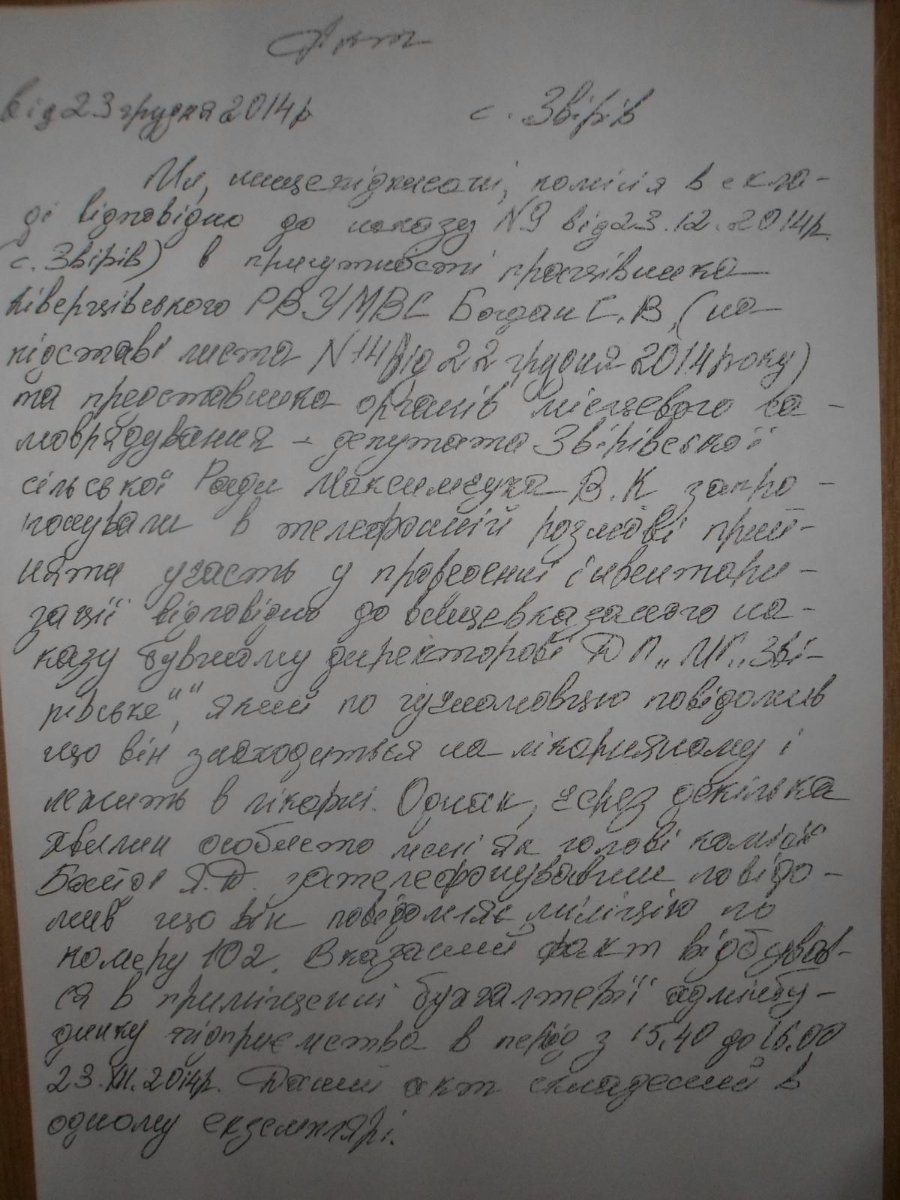 Акт
від 23 грудня 2014р с. Звірів
Ми, нищепідписані, комісія в скла-
ді відповідно до наказу №9 від 23.12.2014р.
с. Звірів) в присутності працівника
Ківерцівського РВУМВС Богдан С.В. (на
підставі листа №14 від 22 грудня 2014 року)
та представника органів місцевого са-
моврядування - депутата Звірівської
сільської Ради Максимчука В.К запро-
понували в телефонній розмові прий-
няти участь у проведенні інвентари-
зації відповідно до вищевказаного на-
казу бувшому директорові ДП „МГ „Зві-
рівське"", який по гучномовцю повідомив
що він знаходиться на лікарняному і
лежить в лікарні. Однак, через декілька
хвилин особисто мені як голові комісії
Я.Д. зателефонувавши повідо-
мив що він повідомляє міліцію по
номеру 102. Вказаний факт відбував-
ся в приміщенні бухгалтерії адмінбу-
динку підприємства в період з 15.40 до 16.00
23.XII.2014р. Даний акт складений в
одному екземплярі.